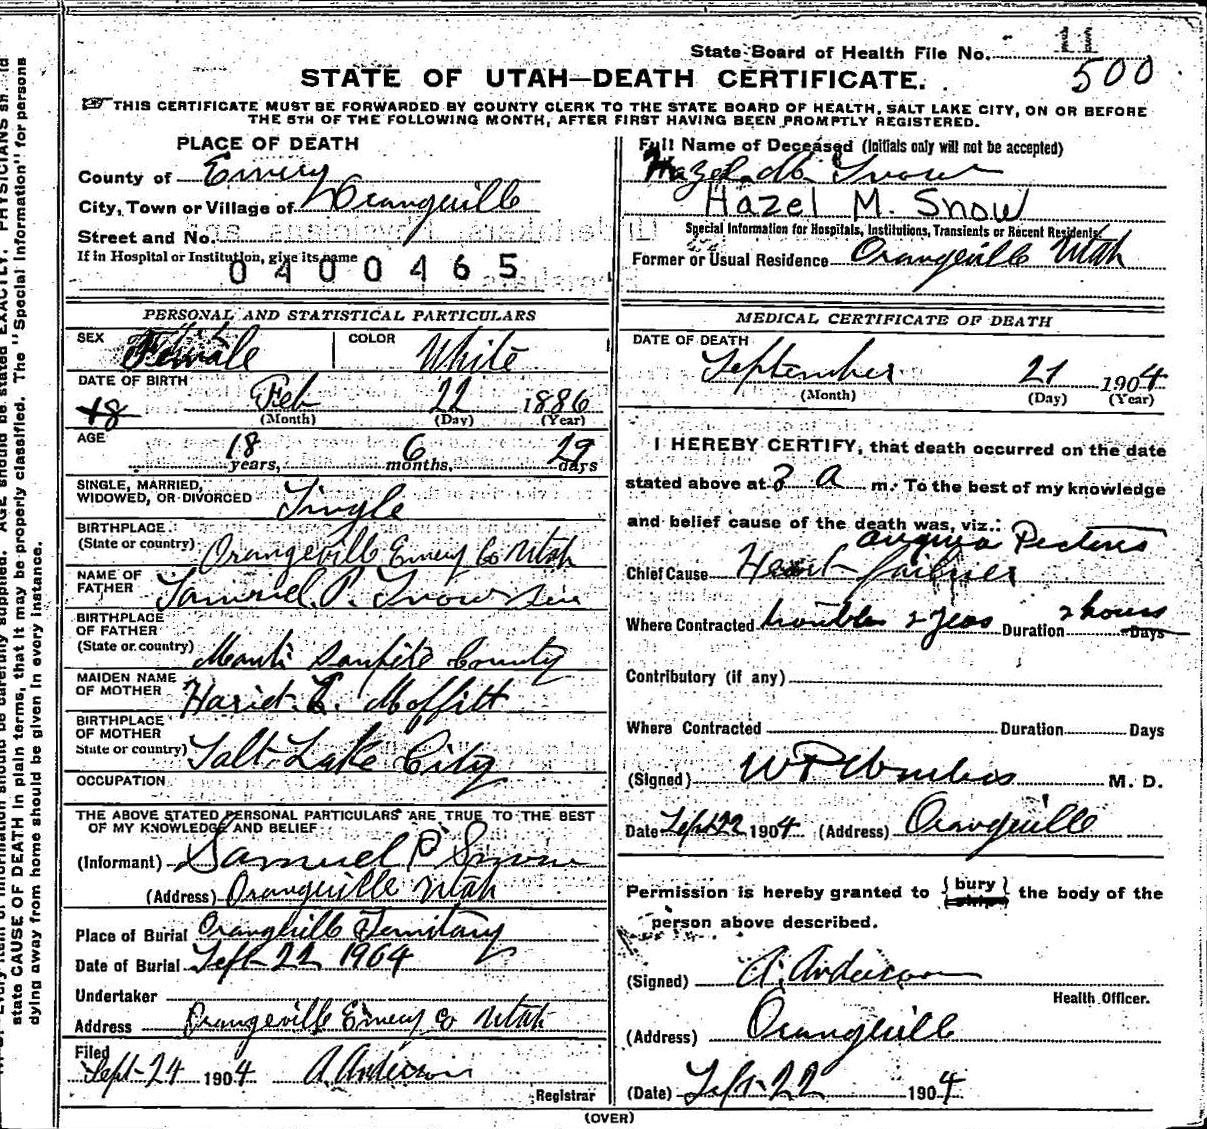 State Board of Health File No. 11
500
STATE OF UTAH—DEATH CERTIFICATE.
☞ THIS CERTIFICATE MUST BE FORWARDED BY COUNTY CLERK TO THE STATE BOARD OF HEALTH, SALT LAKE CITY, ON OR BEFORE
THE 5TH OF THE FOLLOWING MONTH, AFTER FIRST HAVING BEEN PROMPTLY REGISTERED.
PLACE OF DEATH
County of Emery
City, Town or Village of Orangeville
Street and No.
If in Hospital or Institution, give its name
0400465
Full Name of Deceased (Initials only will not be accepted)
Hazel M. Snow
Hazel M. Snow
Special Information for Hospitals, Institutions, Transients or Recent Residents.
Former or Usual Residence Orangeville Utah
PERSONAL AND STATISTICAL PARTICULARS
SEX Female COLOR White
DATE OF BIRTH
18 Feb 22 1886
(Month) (Day) (Year)
AGE 18 years, 6 months, 29 days
SINGLE, MARRIED,
WIDOWED, OR DIVORCED Single
BIRTHPLACE
(State or country) Orangeville Emery Co Utah
NAME OF
FATHER Samuel P. Snow
BIRTHPLACE
OF FATHER
(State or country) Manti Sanpete County
MAIDEN NAME
OF MOTHER Hariet L. Moffitt
BIRTHPLACE
OF MOTHER
State or country) Salt Lake City
OCCUPATION
THE ABOVE STATED PERSONAL PARTICULARS ARE TRUE TO THE BEST
OF MY KNOWLEDGE AND BELIEF
(Informant) Samuel P Snow
(Address) Orangeville Utah
Place of Burial Orangeville Semitary
Date of Burial Sept 22 1904
Undertaker
Address Orangeville Emery Co Utah
Filed
Sept 24 1904 A. Anderson
Registrar
MEDICAL CERTIFICATE OF DEATH
DATE OF DEATH
September 21 1904
(Month) (Day) (Year)
I HEREBY CERTIFY, that death occurred on the date
stated above at 3 A m. To the best of my knowledge
and belief cause of the death was, viz.:
angina Pectoris
Chief Cause Heart failuer
Where Contracted troubles 2 years Duration 2 hours Days
Contributory (if any)
Where Contracted Duration Days
(Signed) M. D.
Date Sept 22 1904 (Address) Orangeville
Permission is hereby granted to { bury } the body of the
person above described.
(Signed) A. Anderson
Health Officer.
(Address) Orangeville
(Date) Sept 22 1904
(OVER)
state CAUSE OF DEATH in plain terms, that it may be properly classified. The "Special Information" for persons
dying away from home should be given in every instance.